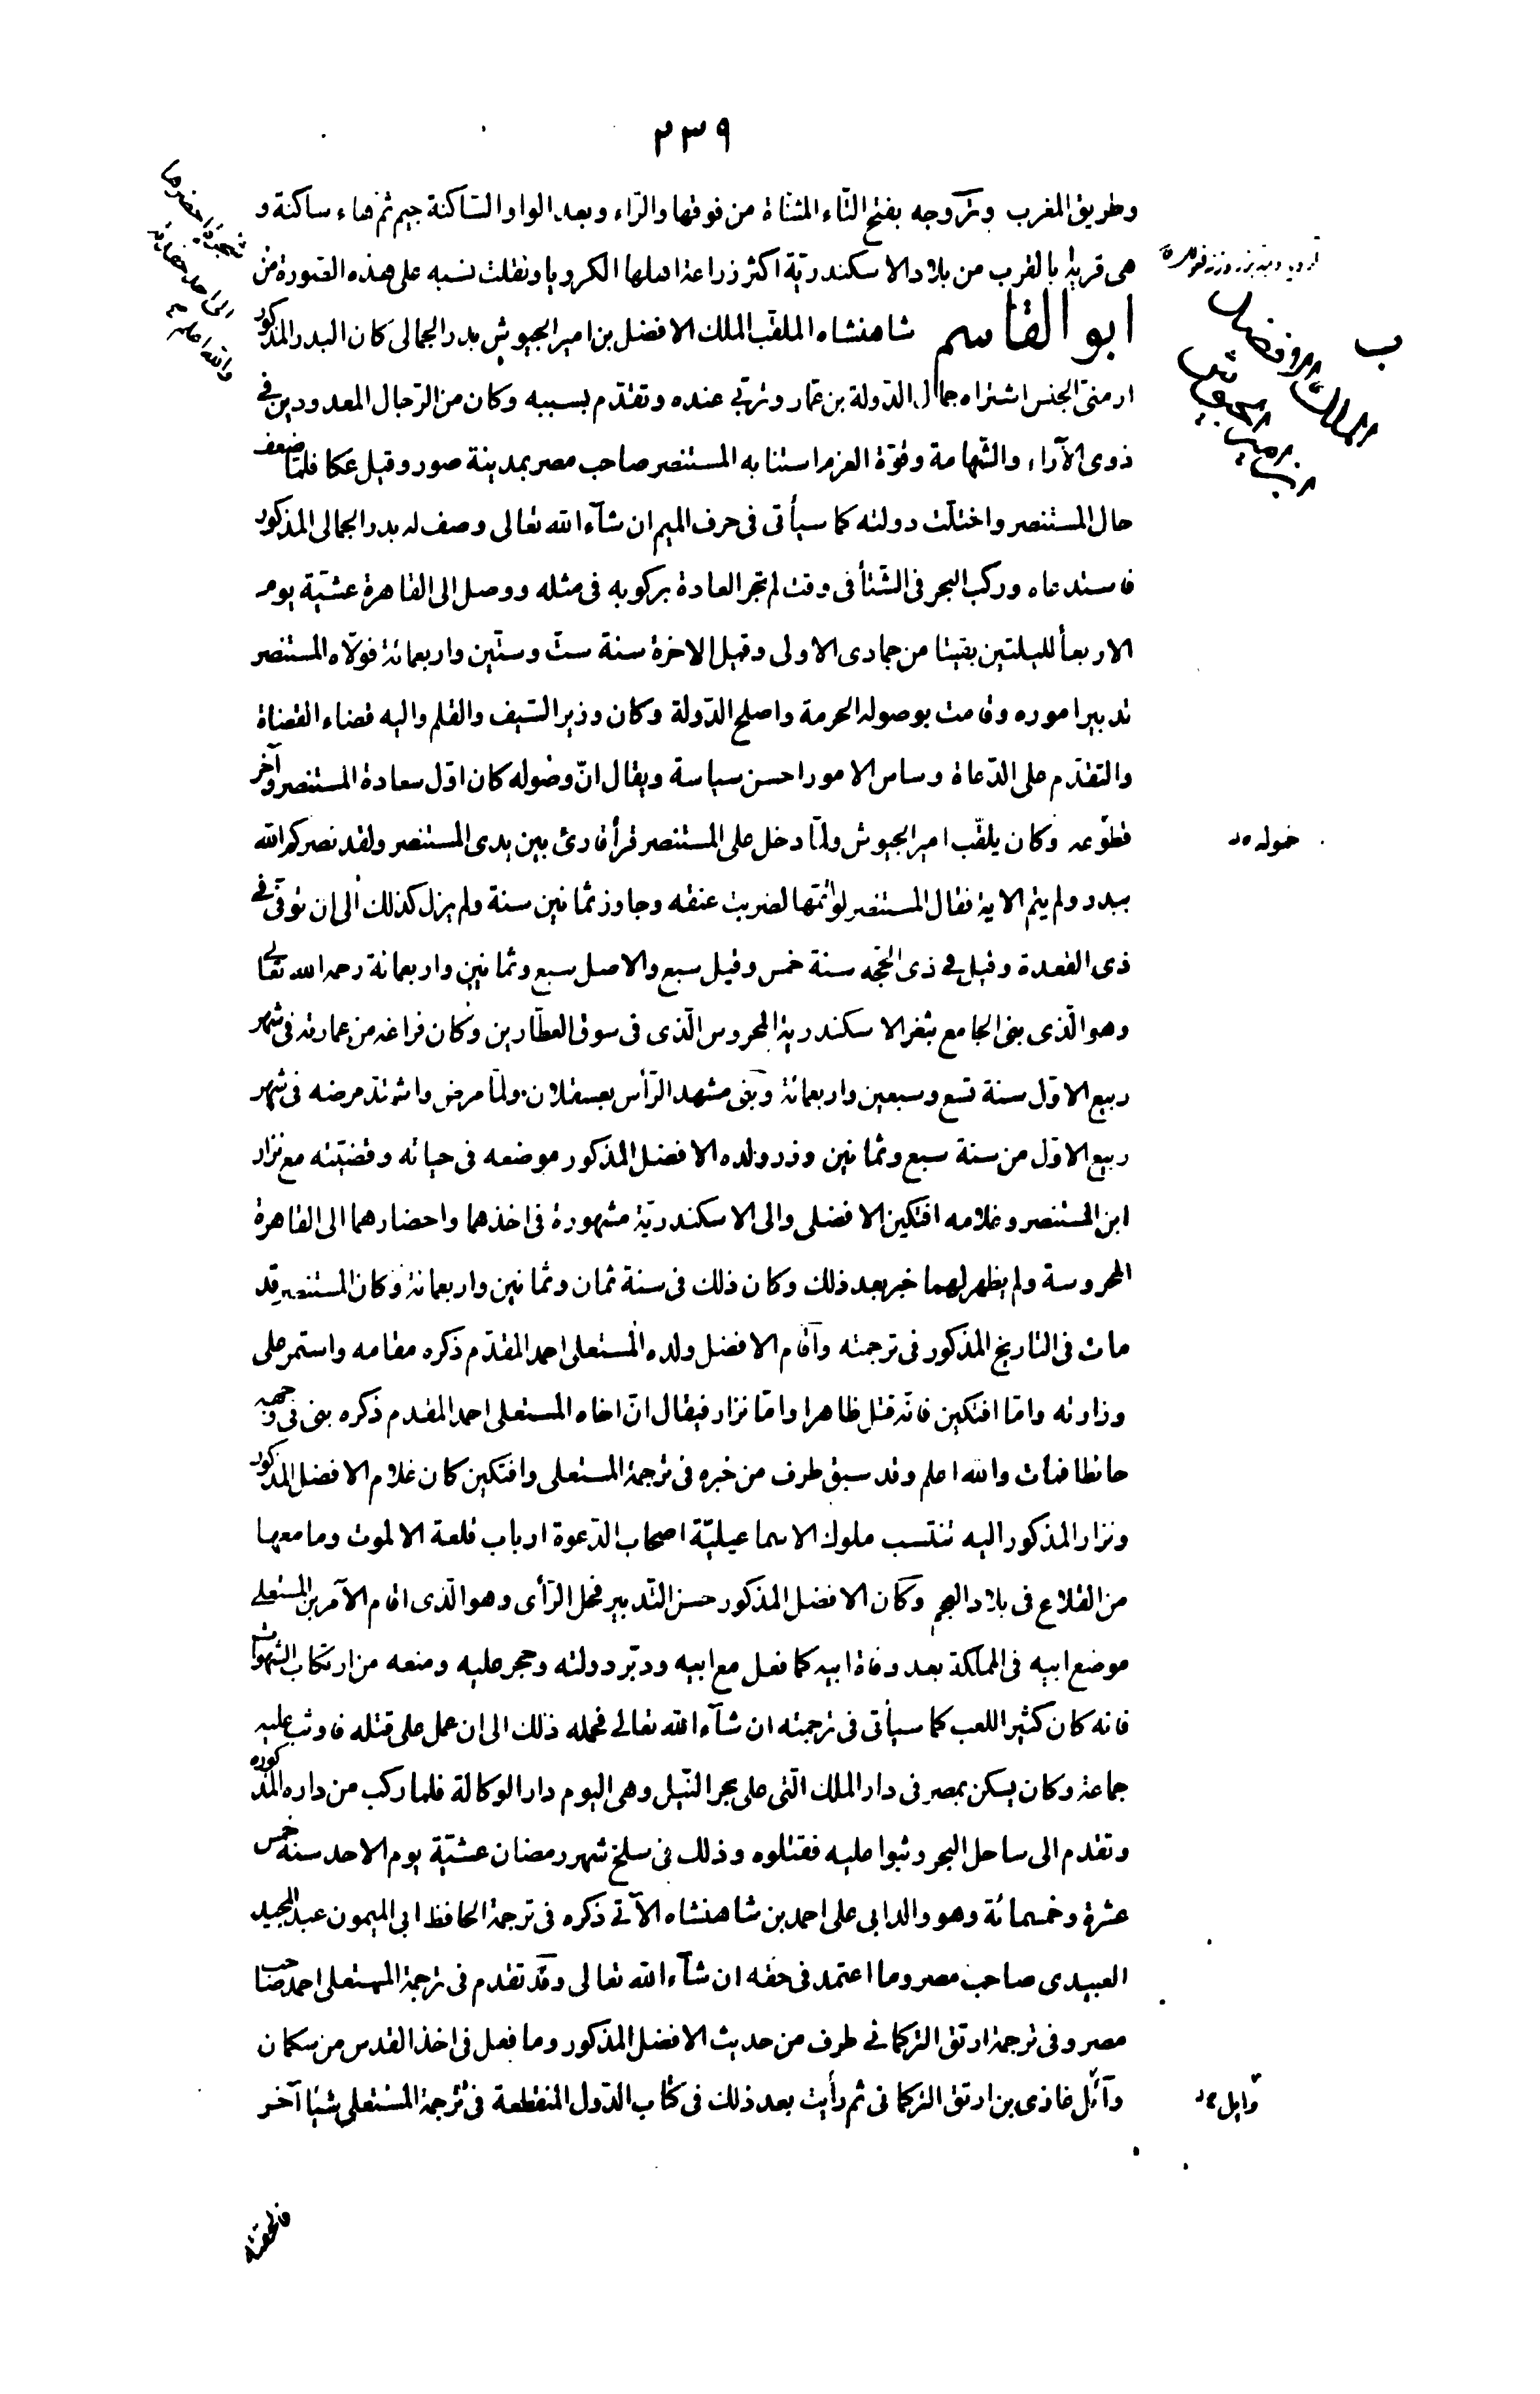 ٢٣٩
وطريق المغرب وتروجه بفتح التاء المثناة من فوقها والراء وبعد الواو الساكنة جيم ثم هاء ساكنة و
هى قرية بالقرب من بلاد الاسكندرية اكثر زراعة اهلها الكرويا ونقلت نسبه على هذه الصورة من
شجرة احضرها
والله اعلم
ابو القاسم شاهنشاه الملقب الملك الافضل بن امير الجيوش بدر الجمالى كان البدر المذكور
ب
الملك الافضل
ابن امير الجيوش
ارمنى الجنس اشتراه جمال الدولة بن عمار وتربى عنده وتقدم بسببه وكان من الرجال المعدودين فى
ذوى الآراء والشهامة وقوة العزم استنابه المستنصر صاحب مصر بمدينة صور وقيل عكا فلما ضعف
حال المستنصر واختلت دولته كما سيأتى فى حرف الميم ان شآء الله تعالى وصف له بدر الجمالى المذكور
فاستدعاه وركب البحر فى الشتأ فى وقت لم تجر العادة بركوبه فى مثله ووصل الى القاهرة عشية يوم
الاربعأ لليلتين بقيتا من جمادى الاولى وقيل الاخرة سنة ست وستين واربعمائة فولاه المستنصر
تدبير اموره وقامت بوصوله الحرمة واصلح الدولة وكان وزير السيف والقلم واليه قضاء القضاة
والتقدم على الدعاة وساس الامور احسن سياسة ويقال ان وصوله كان اول سعادة المستنصر وآخر
قطوعه وكان يلقب امير الجيوش ولما دخل على المستنصر قرأ قارئ بين يدى المستنصر ولقد نصركم الله
ببدر ولم يتم الاية فقال المستنصر لو اتمها لضربت عنقه وجاوز ثمانين سنة ولم يزل كذلك الى ان توفى فى
ذى القعدة وقيل فى ذى الحجه سنة خمس وقيل سبع والاصل سبع وثمانين واربعمائة رحمه الله تعالى
وهو الذى بنى الجامع بثغر الاسكندرية المحروس الذى فى سوق العطارين وكان فراغه من عمارته فى شهر
ربيع الاول سنة تسع وسبعين واربعمائة وبنى مشهد الرأس بعسقلان ولما مرض واشتد مرضه فى شهر
ربيع الاول من سنة سبع وثمانين وزر ولده الافضل المذكور موضعه فى حياته وقضيته مع نزار
ابن المستنصر وغلامه افتكين الافضلى والى الاسكندرية مشهورة فى اخذهما واحضارهما الى القاهرة
المحروسة ولم يظهر لهما خبر بعد ذلك وكان ذلك فى سنة ثمان وثمانين واربعمائة وكان المستنصر قد
مات فى التاريخ المذكور فى ترجمته واقام الافضل ولده المستعلى احمد المقدم ذكره مقامه واستمر على
وزارته واما افتكين فانه قتل ظاهرا واما نزار فيقال ان اخاه المستعلى احمد المقدم ذكره بنى فى وجهه
حائطا فمات والله اعلم وقد سبق طرف من خبره فى ترجمة المستعلى وافتكين كان غلام الافضل المذكور
ونزار المذكور اليه تنتسب ملوك الاسماعيلية اصحاب الدعوة ارباب قلعة الالموت وما معها
من القلاع فى بلاد العجم وكان الافضل المذكور حسن التدبير فحل الرأى وهو الذى اقام الآمر بن المستعلى
موضع ابيه فى المملكة بعد وفاة ابيه كما فعل مع ابيه ودبر دولته وحجر عليه ومنعه من ارتكاب الشهوات
فانه كان كثير اللعب كما سيأتى فى ترجمته ان شآء الله تعالى فحمله ذلك الى ان عمل على قتله فاوثب عليه
جماعة وكان يسكن بمصر فى دار الملك التى على بحر النيل وهى اليوم دار الوكالة فلما ركب من داره المذكوره
وتقدم الى ساحل البحر وثبوا عليه فقتلوه وذلك فى سلخ شهر رمضان عشية يوم الاحد سنة خمس
عشرة وخمسمائة وهو والد ابى على احمد بن شاهنشاه الآتى ذكره فى ترجمة الحافظ ابى الميمون عبد المجيد
العبيدى صاحب مصر وما اعتمد فى حقه ان شآء الله تعالى وقد تقدم فى ترجمة المستعلى احمد صاحب
مصر وفى ترجمة ارتق التركمانى طرف من حديث الافضل المذكور وما فعل فى اخذ القدس من سكمان
وآئل غازى بن ارتق التركمانى ثم رأيت بعد ذلك فى كتاب الدول المنقطعة فى ترجمة المستعلى شيئا آخر
فالحقته